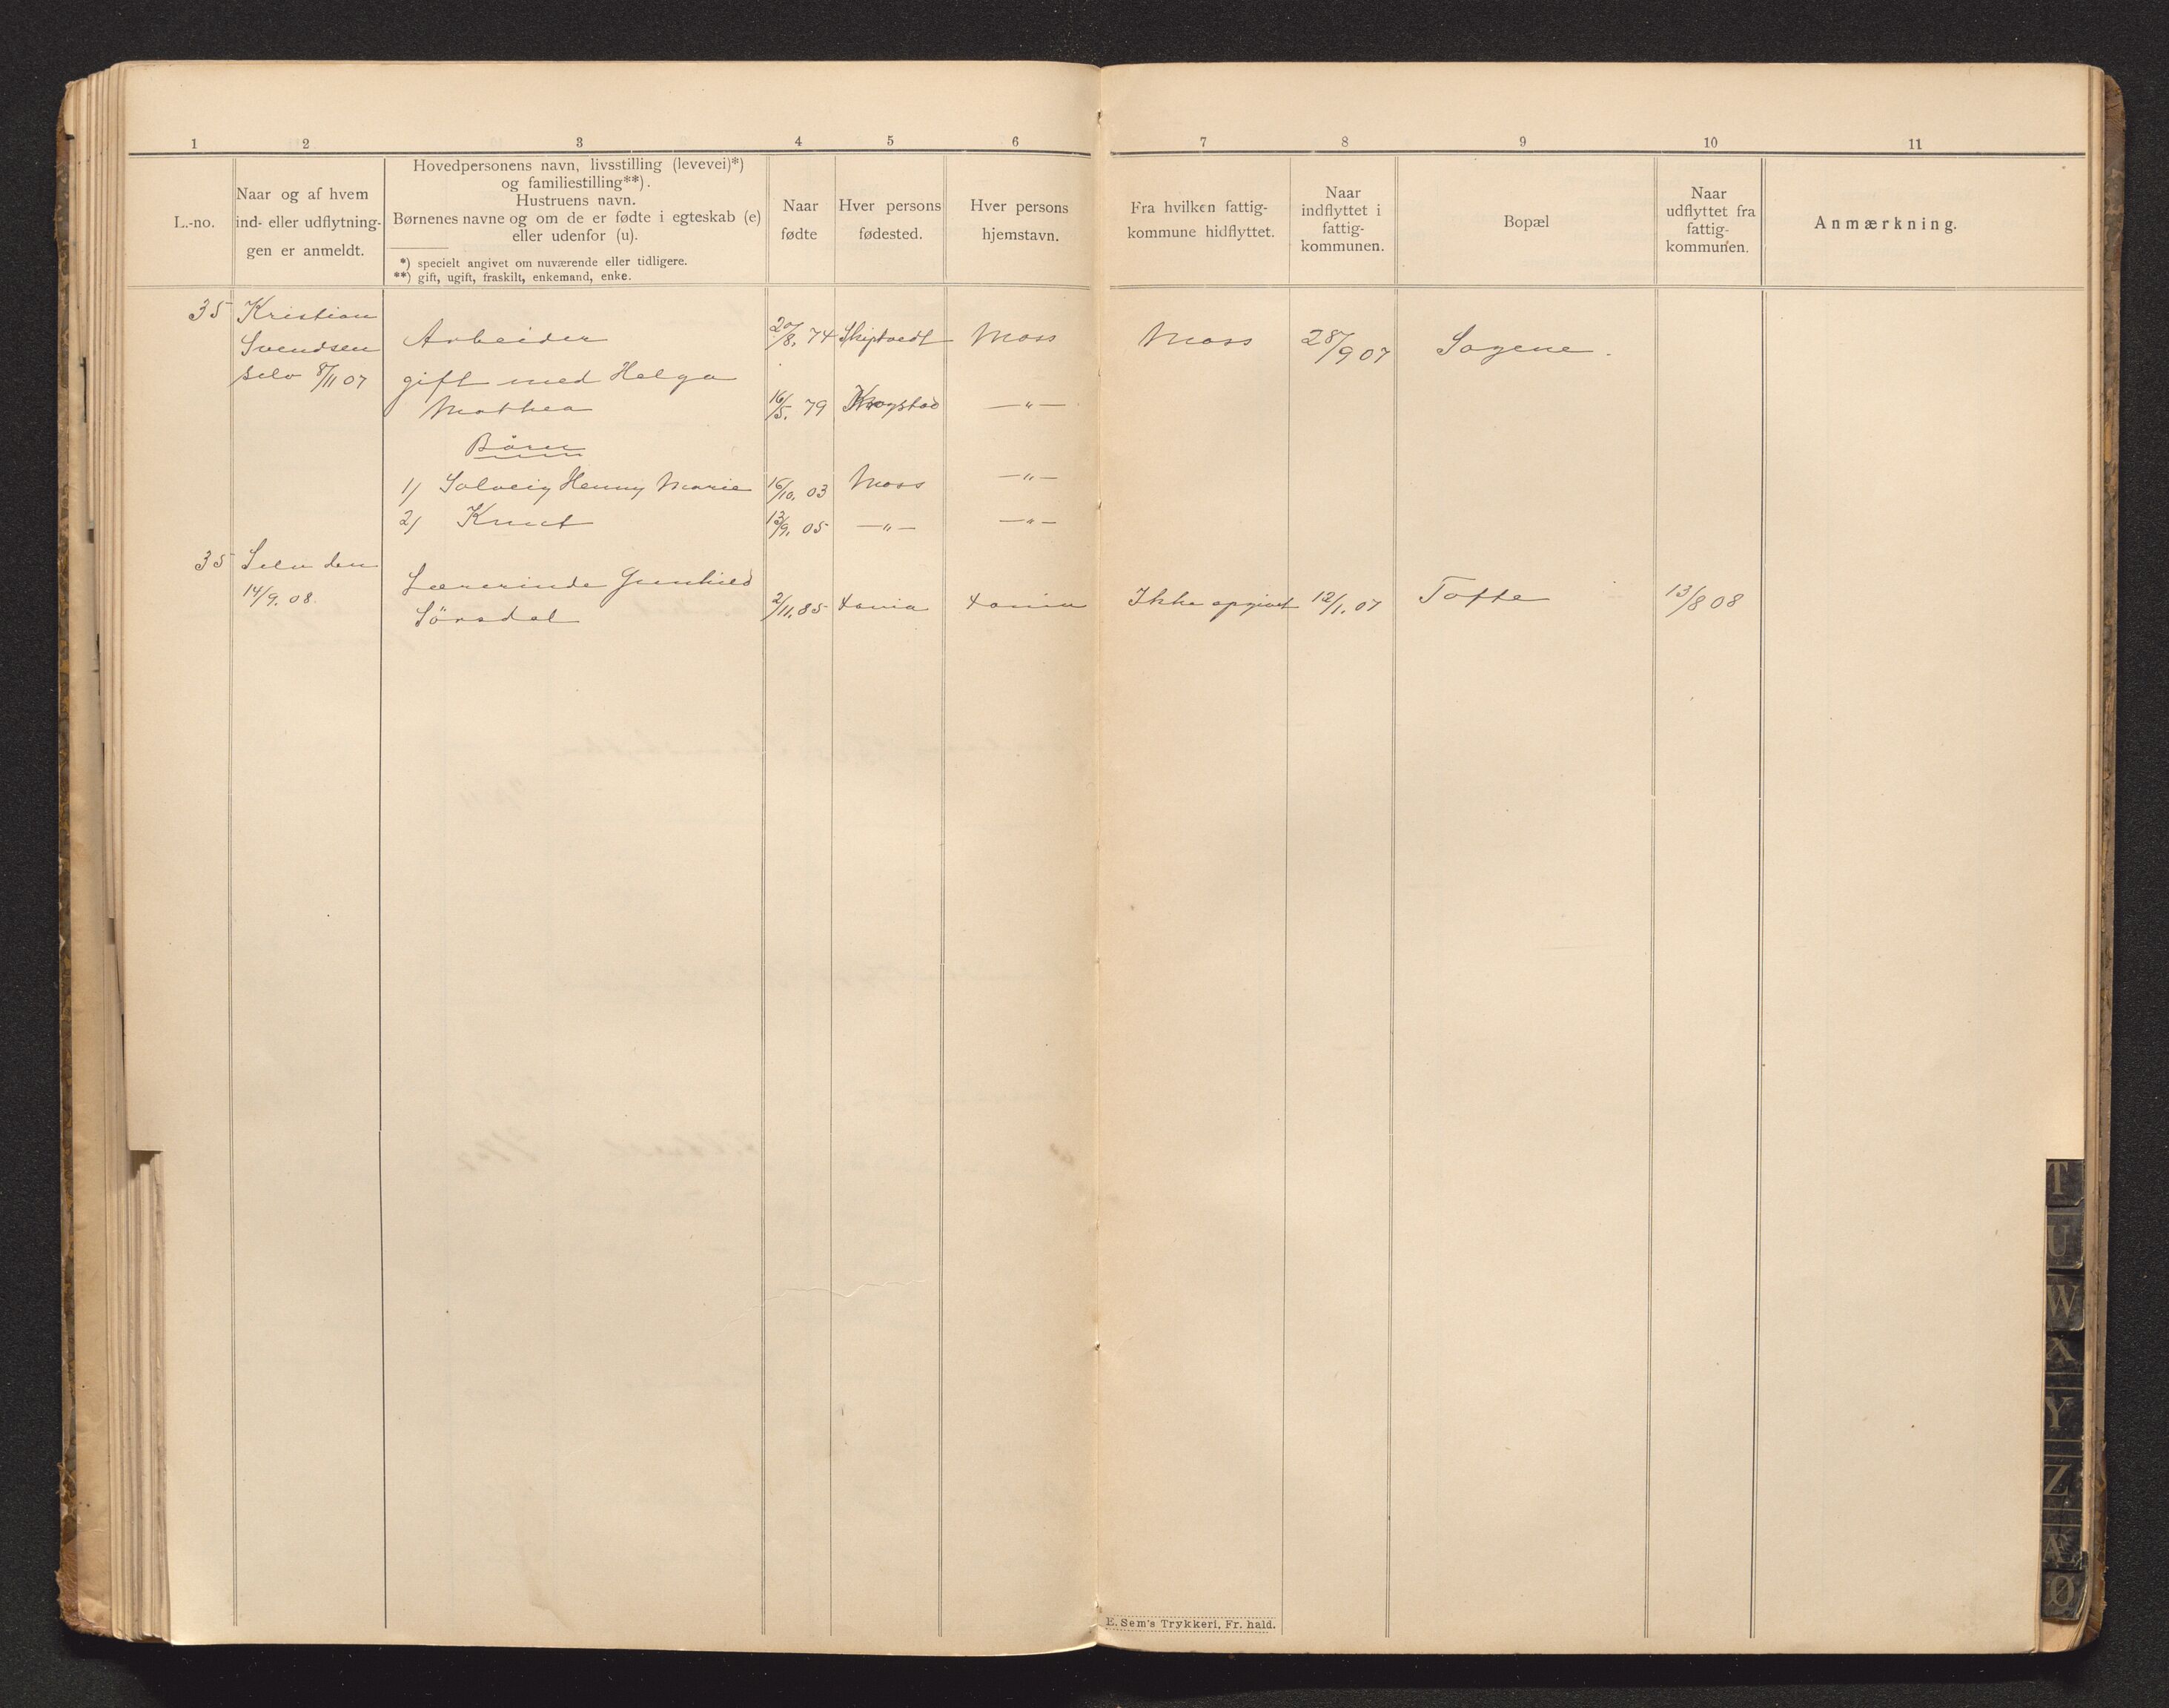 1 2 3 4 5 6 7 8 9 10 11
L.-no.
Naar og af hvem
ind- eller udflytnin-
gen er anmeldt.
Hovedpersonens navn, livsstilling (levevei)*)
og familiestilling**).
Hustruens navn.
Børnenes navne og om de er fødte i egteskab (e)
eller udenfor (u).
*) specielt angivet om nuværende eller tidligere.
**) gift, ugift, fraskilt, enkemand, enke.
Naar
fødte
Hver persons
fødested.
Hver persons
hjemstavn.
Fra hvilken fattig-
kommune hidflyttet.
Naar
indflyttet i
fattig-
kommunen.
Bopæl
Naar
udflyttet fra
fattig-
kommunen.
Anmærkning.
35 Kristian
Svendsen Arbeider 20/8. 74 Skiptvedt Moss Moss 28/9 07 Sagene.
selv 8/11 07 gift med Helga
Mathea 16/5. 79 Krogstad —"—
Børn
1) Solveig Henny Marie 16/10. 03 Moss —"—
2) Knut 13/9. 05 —"— —"—
35 Selv den Lærerinde Gunhild
14/9. 08. Sörsdal 2/11. 85 Xania Xania Ikke opgivet 12/1. 07 Tofte 13/8 08
E. Sem's Trykkeri, Fr. hald.
T
U
W
X
Y
Z
Æ
Ø